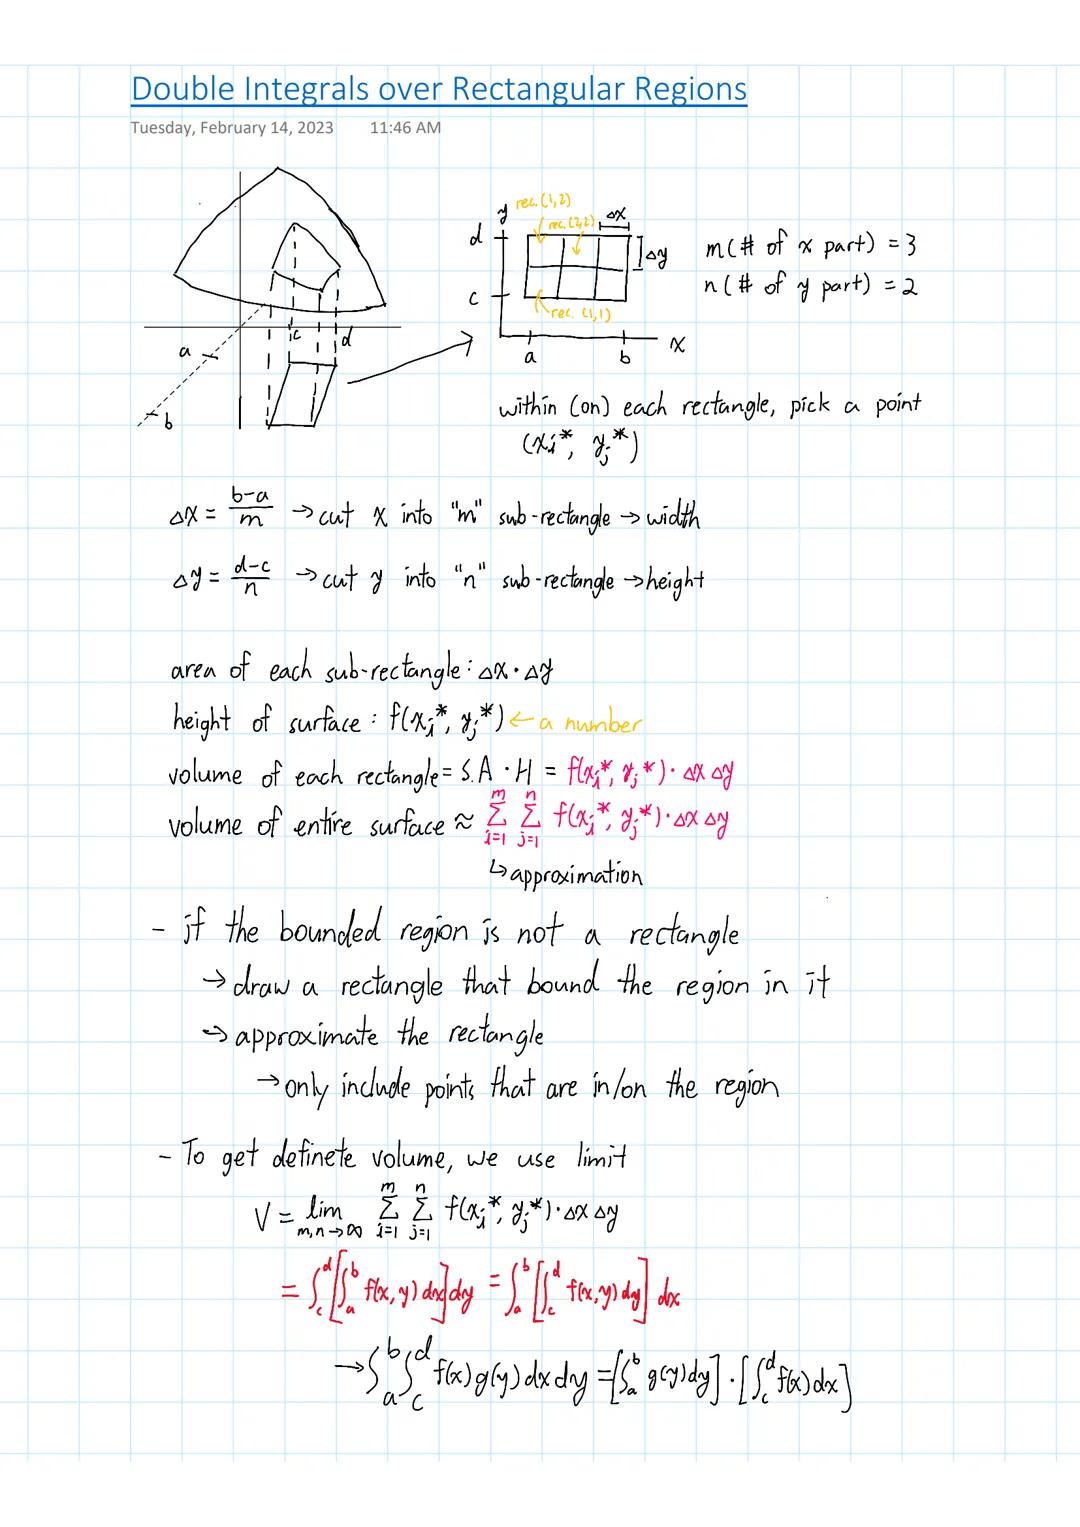 Double Integrals over Rectangular Regions
Tuesday, February 14, 2023 11:46 AM
a
b
c
d
y
rec. (1,2)
rec. (2,2)
Δx
Δy
d
c
rec. (1,1)
a
b
x
m (# of x part) = 3
n (# of y part) = 2
within (on) each rectangle, pick a point
(xi*, yj*)
Δx = (b-a)/m → cut x into "m" sub-rectangle → width
Δy = (d-c)/n → cut y into "n" sub-rectangle → height
area of each sub-rectangle: Δx · Δy
height of surface: f(xi*, yj*) ← a number
volume of each rectangle = S.A · H = f(xi*, yj*) · Δx Δy
volume of entire surface ≈ Σ_{i=1}^{m} Σ_{j=1}^{n} f(xi*, yj*) · Δx Δy
↳ approximation
- if the bounded region is not a rectangle
→ draw a rectangle that bound the region in it
→ approximate the rectangle
→ only include points that are in/on the region
- To get definete volume, we use limit
V = lim_{m,n→∞} Σ_{i=1}^{m} Σ_{j=1}^{n} f(xi*, yj*) · Δx Δy
= ∫_c^d [∫_a^b f(x,y) dx] dy = ∫_a^b [∫_c^d f(x,y) dy] dx
→ ∫_a^b ∫_c^d f(x) g(y) dx dy = [∫_a^b g(y) dy] · [∫_c^d f(x) dx]